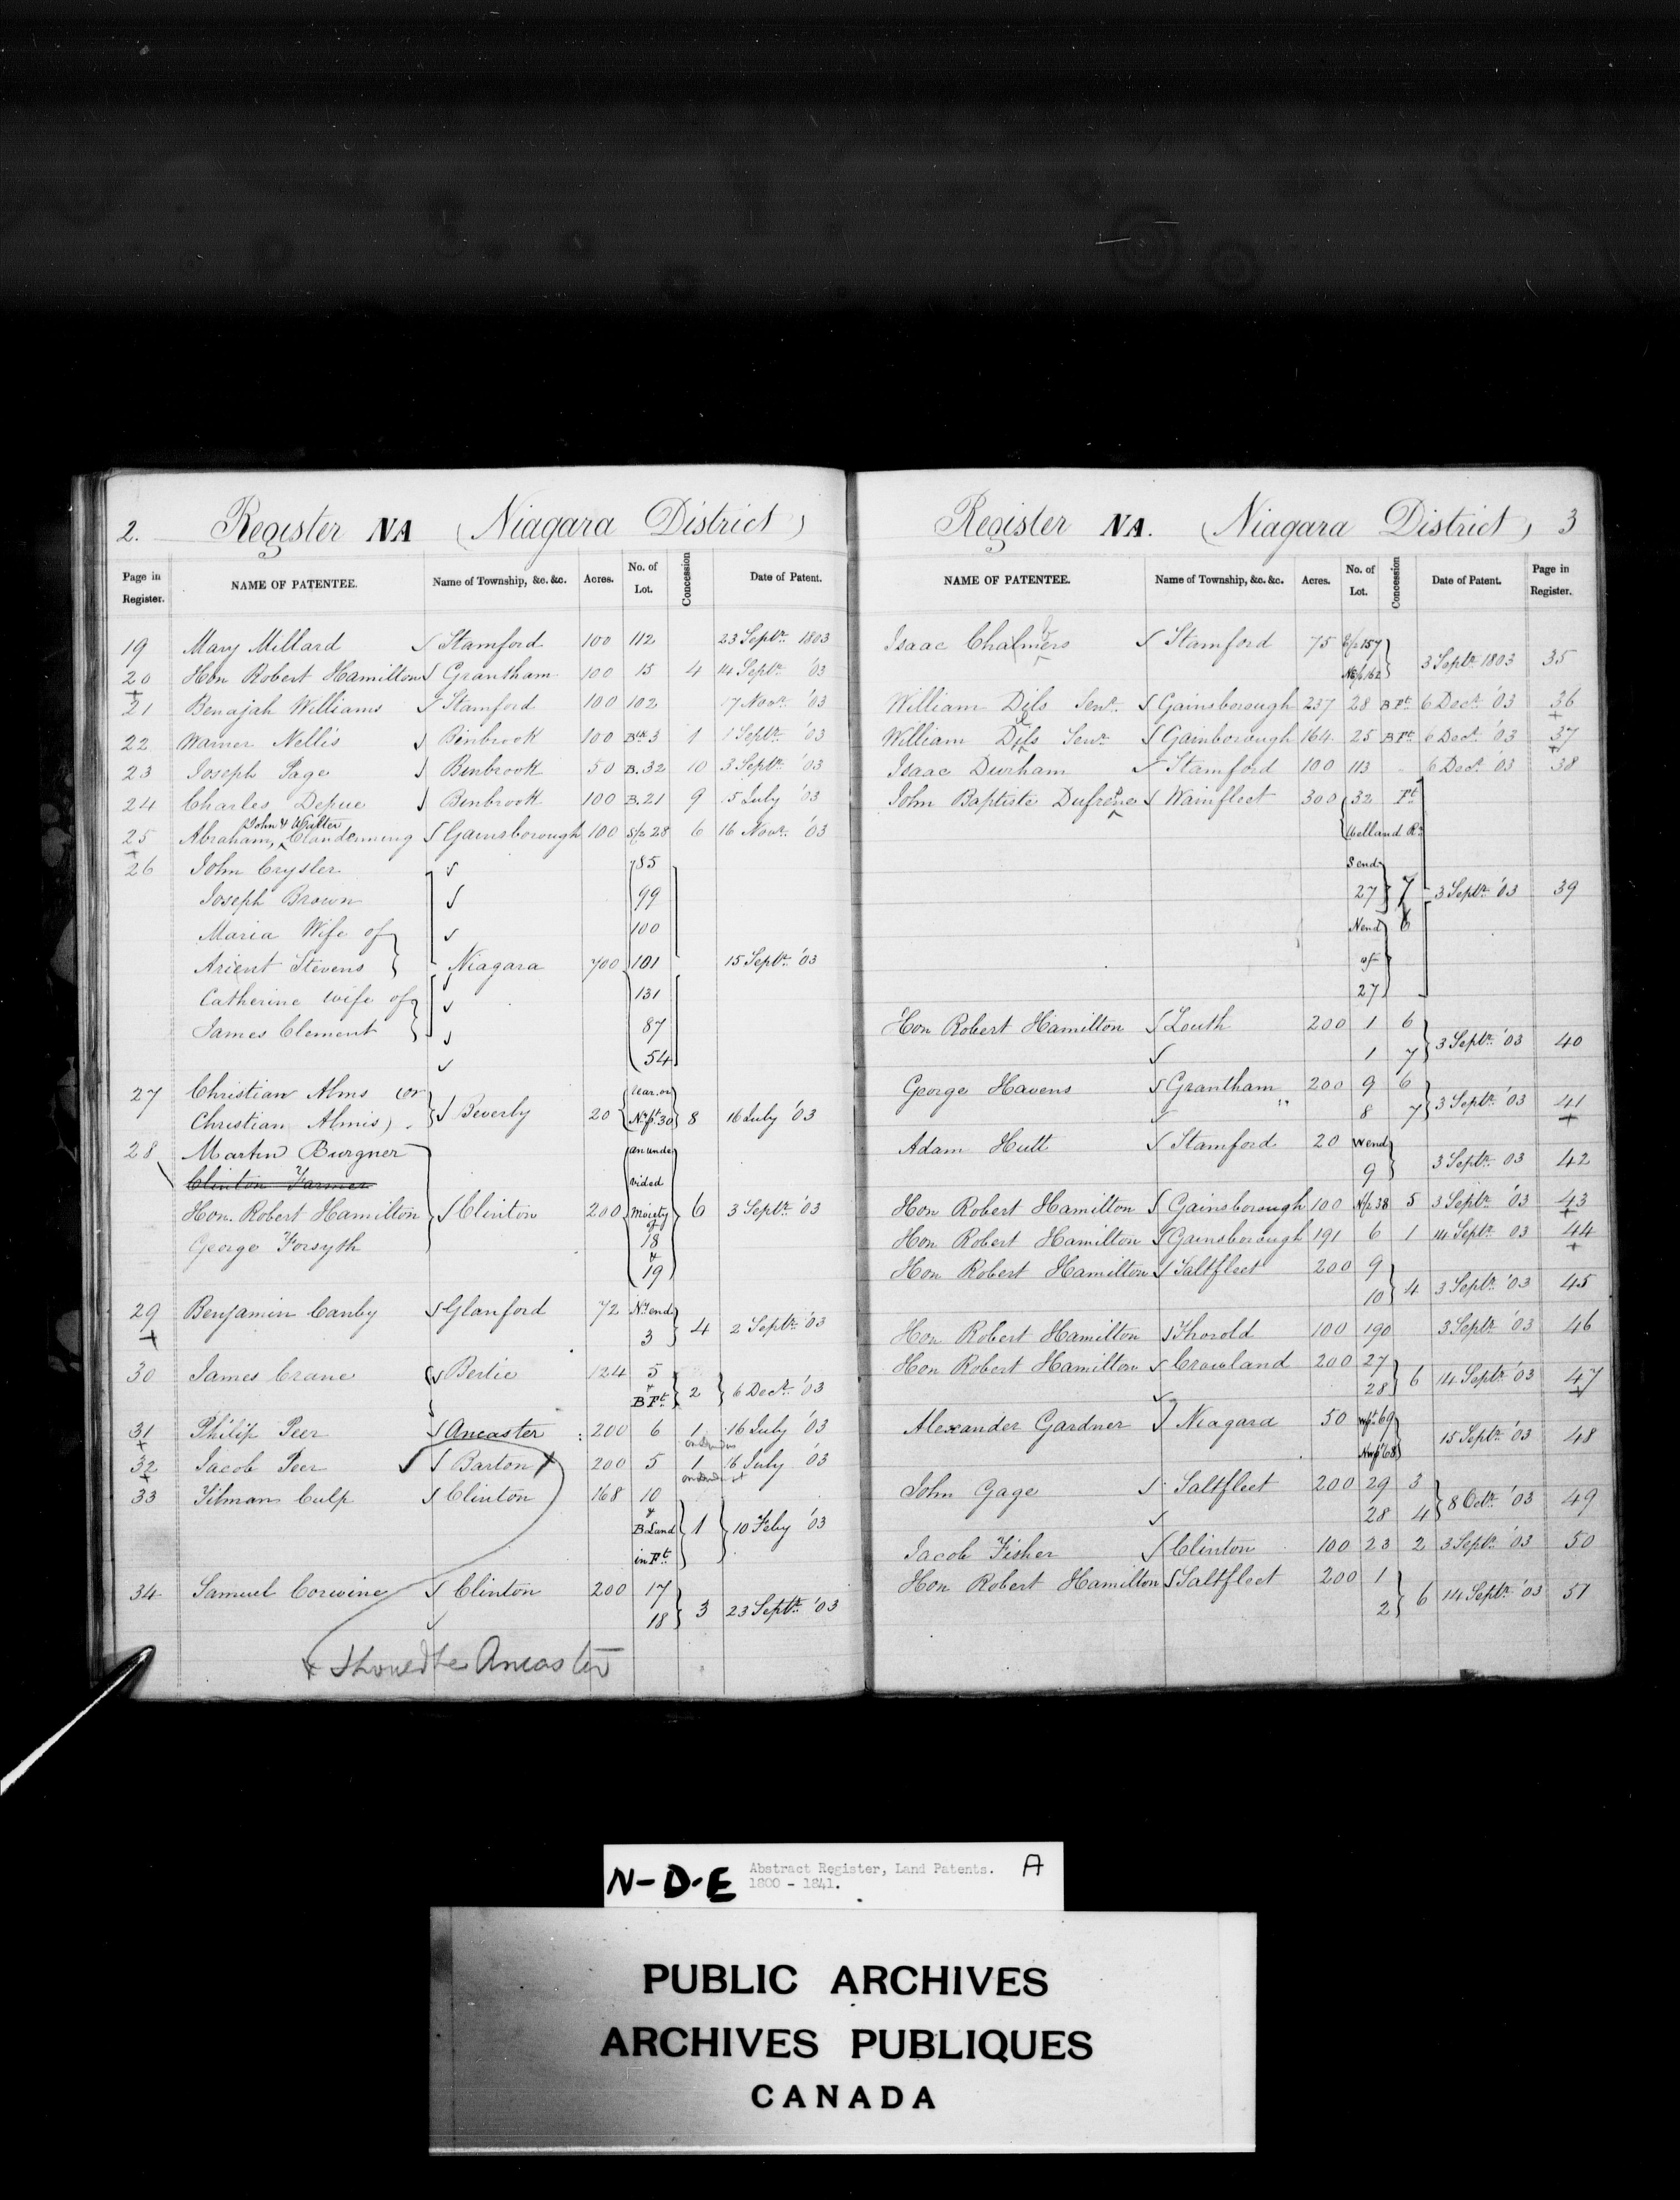 2. Register NA (Niagara District)
Page in Register. NAME OF PATENTEE. Name of Township, &c. &c. Acres. No. of Lot. Concession Date of Patent.
19 Mary Millard Stamford 100 112 23 Septr. 1803
20 Hon Robert Hamilton Grantham 100 15 4 14 Septr. '03
21 Benajah Williams Stamford 100 102 17 Novr. '03
22 Warner Nellis Binbrook 100 Blk 3 1 1 Septr. '03
23 Joseph Page Binbrook 50 B. 32 10 3 Septr. '03
24 Charles Depue Binbrook 100 B. 21 9 15 July '03
John & Walter
25 Abraham, Clendenning Gainsborough 100 S/2 28 6 16 Novr. '03
26 John Crysler 85
Joseph Brown 99
Maria Wife of 100
Arient Stevens Niagara 700 101 15 Septr. '03
Catherine wife of 131
James Clement 87
54
27 Christian Almis (or Rear or
Christian Almis) Beverly 20 N. pt. 30 8 16 July '03
28 Martin Burgner an undi
Clinton Farmer vided
Hon. Robert Hamilton Clinton 200 Moiety of 6 3 Septr. '03
George Forsyth 18
&
19
29 Benjamin Canby Glanford 72 N. end
3 4 2 Septr. '03
30 James Crane Bertie 124 5
& B Ft. 2 6 Decr. '03
31 Philip Peer Ancaster 200 6 1 16 July '03
32 Jacob Peer Barton X 200 5 1 16 July '03
33 Tilman Culp Clinton 168 10
&
B. Land 1 10 Feby '03
in Ft.
34 Samuel Corwine Clinton 200 17
18 3 23 Septr. '03
x Should be Ancaster
Register NA. (Niagara District) 3
NAME OF PATENTEE. Name of Township, &c. &c. Acres. No. of Lot. Concession Date of Patent. Page in Register.
Isaac Chalmers Stamford 75 157
162 3 Septr. 1803 35
William Dils Senr. Gainsborough 237 28 B Ft. 6 Decr. '03 36
William Dils Senr. Gainborough 164 25 B Ft. 6 Decr. '03 37
Isaac Durham Stamford 100 113 6 Decr. '03 38
John Baptiste Dufrene Wainfleet 300 32 Ft.
Welland R.
S end
27 7 3 Septr. '03 39
N end 6
of
27
Hon Robert Hamilton Louth 200 1 6
1 7 3 Septr. '03 40
George Havens Grantham 200 9 6
8 7 3 Septr. '03 41
Adam Hutt Stamford 20 W end
9 3 Septr. 03 42
Hon Robert Hamilton Gainsborough 100 N/2 38 5 3 Septr. '03 43
Hon Robert Hamilton Gainsborough 191 6 1 14 Septr. 03 44
Hon Robert Hamilton Saltfleet 200 9
10 4 3 Septr. '03 45
Hon Robert Hamilton Thorold 100 190 3 Septr. '03 46
Hon Robert Hamilton Crowland 200 27
28 6 14 Septr. '03 47
Alexander Gardner Niagara 50 W pt. 69
68 15 Septr. '03 48
John Gage Saltfleet 200 29 3
28 4 8 Octr. '03 49
Jacob Fisher Clinton 100 23 2 3 Septr. '03 50
Hon Robert Hamilton Saltfleet 200 1
2 6 14 Septr. '03 51
N-D-E Abstract Register, Land Patents. A
1800 - 1841.
PUBLIC ARCHIVES
ARCHIVES PUBLIQUES
CANADA